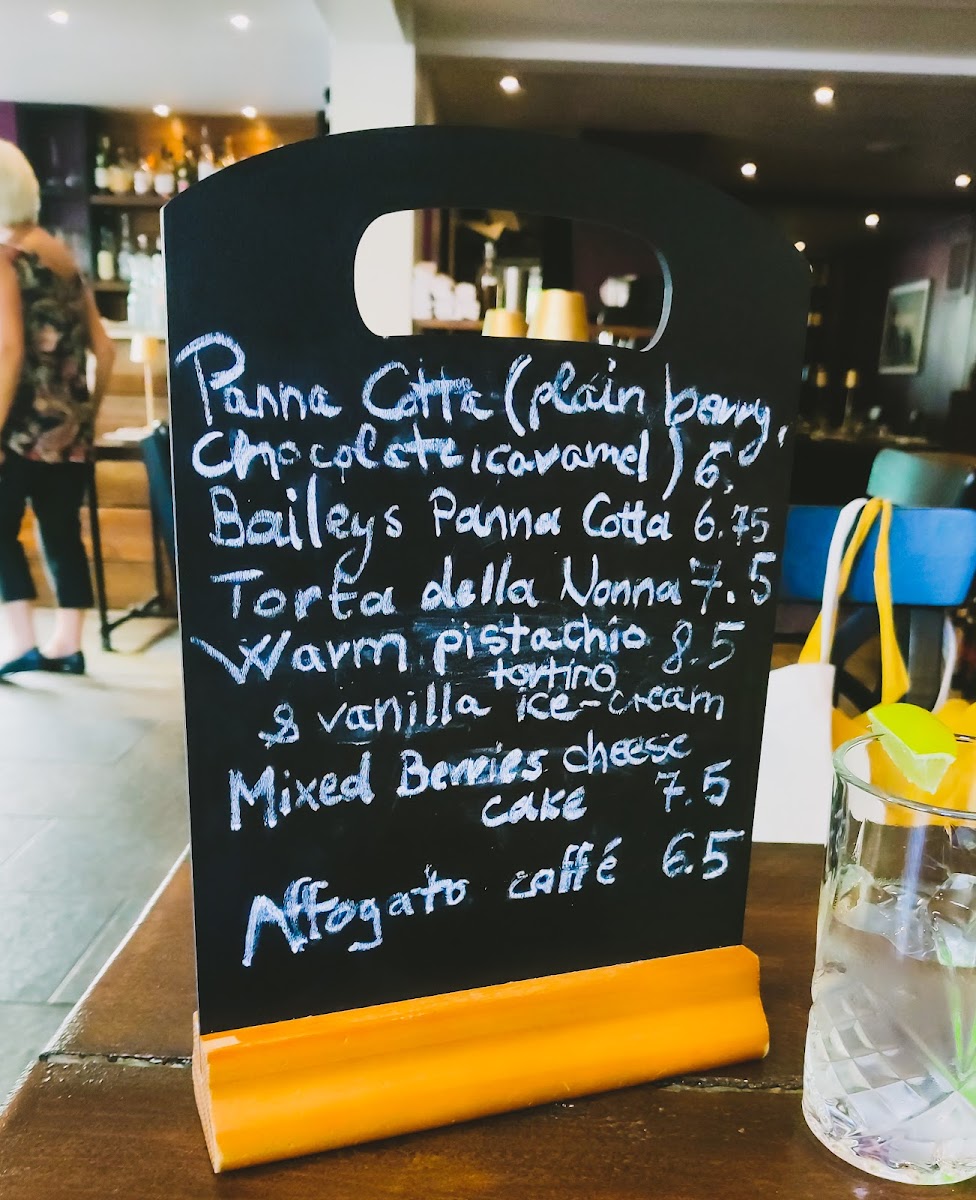 Panna Cotta (plain berry,
chocolate, caramel) 6,
Baileys Panna Cotta 6.75
Torta della Nonna 7.5
Warm pistachio 8.5
tortino
& vanilla ice-cream
Mixed Berries cheese
cake 7.5
Affogato caffé 6.5